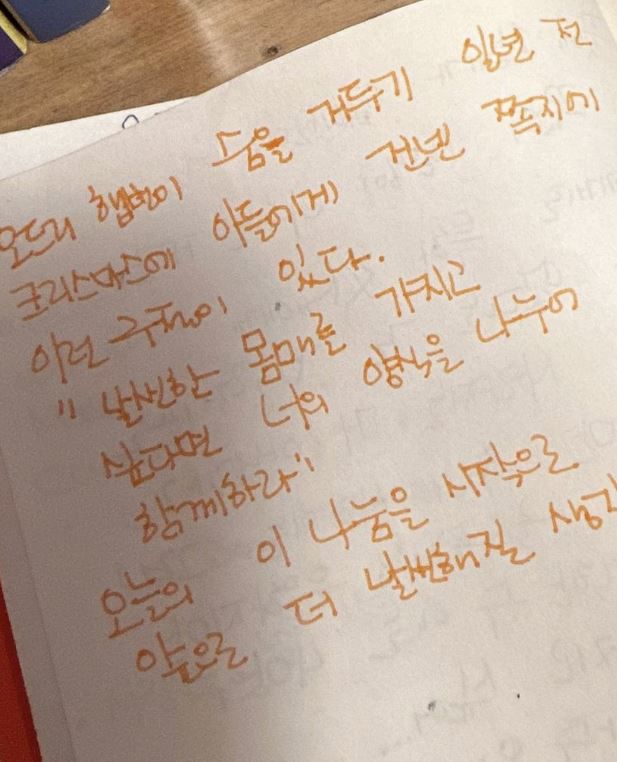 오드리 햅번이 숨을 거두기 일년 전
크리스마스에 아들에게 건넨 쪽지에
이런 구절이 있다.
"날씬한 몸매를 가지고
싶다면 너의 양식을 나누어
함께하라"
오늘의 이 나눔을 시작으로
앞으로 더 날씬해질